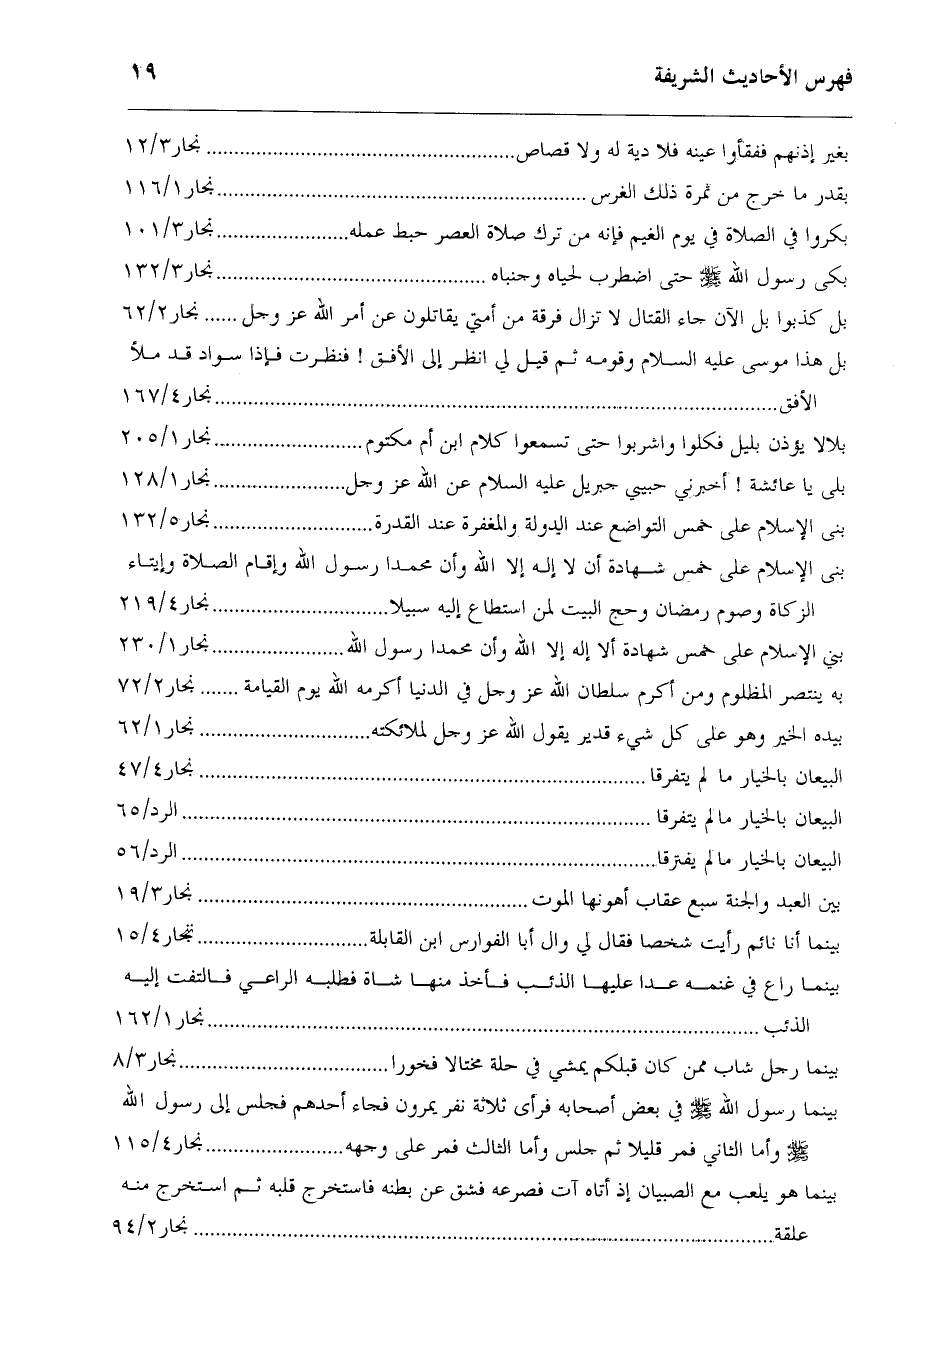 فهرس الأحاديث الشريفة ١٩
بغير إذنهم ففقأوا عينه فلا دية له ولا قصاص .......... نحار١٢/٣
بقدر ما خرج من ثمرة ذلك الغرس .......... نحار١١٦/١
بكروا في الصلاة في يوم الغيم فإنه من ترك صلاة العصر حبط عمله .......... نحار١٠١/٣
بكى رسول الله ﷺ حتى اضطرب لحياه وجنباه .......... نحار١٣٢/٣
بل كذبوا بل الآن جاء القتال لا تزال فرقة من أمتي يقاتلون عن أمر الله عز وجل ...... نحار٦٢/٢
بل هذا موسى عليه السلام وقومه ثم قيل لي انظر إلى الأفق ! فنظرت فإذا سواد قد ملأ
الأفق .......... نحار١٦٧/٤
بلالا يؤذن بليل فكلوا واشربوا حتى تسمعوا كلام ابن أم مكتوم .......... نحار٢٠٥/١
بلى يا عائشة ! أخبرني حبيبي جبريل عليه السلام عن الله عز وجل .......... نحار١٢٨/١
بنى الإسلام على خمس التواضع عند الدولة والمغفرة عند القدرة .......... نحار١٣٢/٥
بنى الإسلام على خمس شهادة أن لا إله إلا الله وأن محمدا رسول الله وإقام الصلاة وإيتاء
الزكاة وصوم رمضان وحج البيت لمن استطاع إليه سبيلا .......... نحار٢١٩/٤
بني الإسلام على خمس شهادة ألا إله إلا الله وأن محمدا رسول الله .......... نحار٢٣٠/١
به ينتصر المظلوم ومن أكرم سلطان الله عز وجل في الدنيا أكرمه الله يوم القيامة ....... نحار٧٢/٢
بيده الخير وهو على كل شيء قدير يقول الله عز وجل لملائكته .......... نحار٦٢/١
البيعان بالخيار ما لم يتفرقا .......... نحار٤٧/٤
البيعان بالخيار مالم يتفرقا .......... الرد/٦٥
البيعان بالخيار مالم يفترقا .......... الرد/٥٦
بين العبد والجنة سبع عقاب أهونها الموت .......... نحار١٩/٣
بينما أنا نائم رأيت شخصا فقال لي وال أبا الفوارس ابن القابلة .......... نحار١٥/٤
بينما راع في غنمه عدا عليها الذئب فأخذ منها شاة فطلبه الراعي فالتفت إليه
الذئب .......... نحار١٦٢/١
بينما رجل شاب ممن كان قبلكم يمشي في حلة مختالا فخورا .......... نحار٨/٣
بينما رسول الله ﷺ في بعض أصحابه فرأى ثلاثة نفر يمرون فجاء أحدهم فجلس إلى رسول الله
ﷺ وأما الثاني فمر قليلا ثم جلس وأما الثالث فمر على وجهه .......... نحار١١٥/٤
بينما هو يلعب مع الصبيان إذ أتاه آت فصرعه فشق عن بطنه فاستخرج قلبه ثم استخرج منه
علقة .......... نحار٩٤/٢